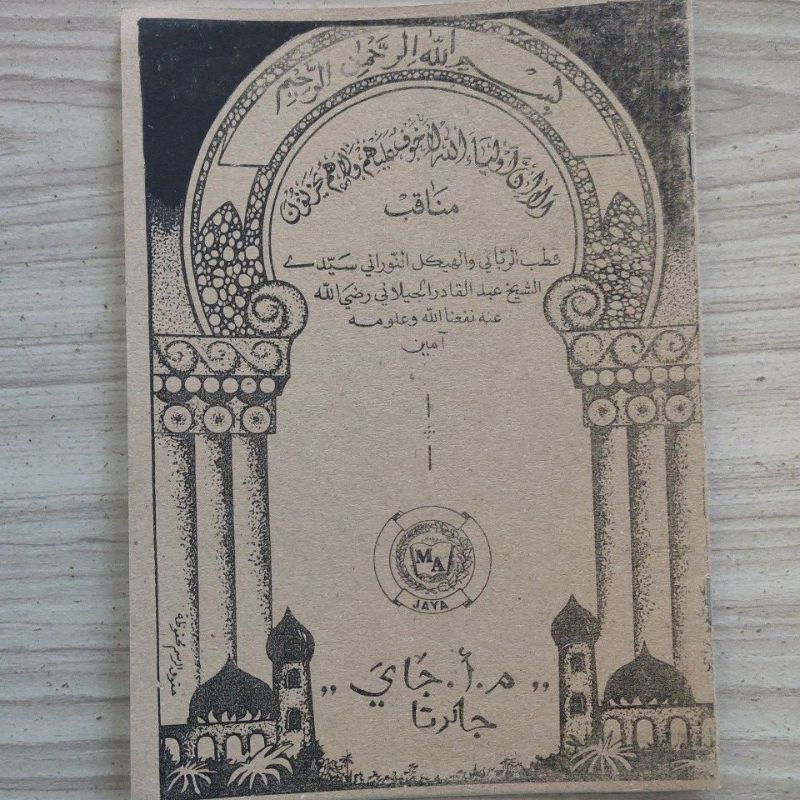 بسم الله الرحمن الرحيم
الا ان اولياء الله لا خوف عليهم ولا هم يحزنون
مناقب
قطب الرباني والهيكل النوراني سيدے
الشيخ عبد القادر الجيلاني رضي الله
عنه نفعنا الله وعلومه
آمين
MA
JAYA
„ م . أ . جاي „
جاكرتا
حقوق الرسم محفوظة